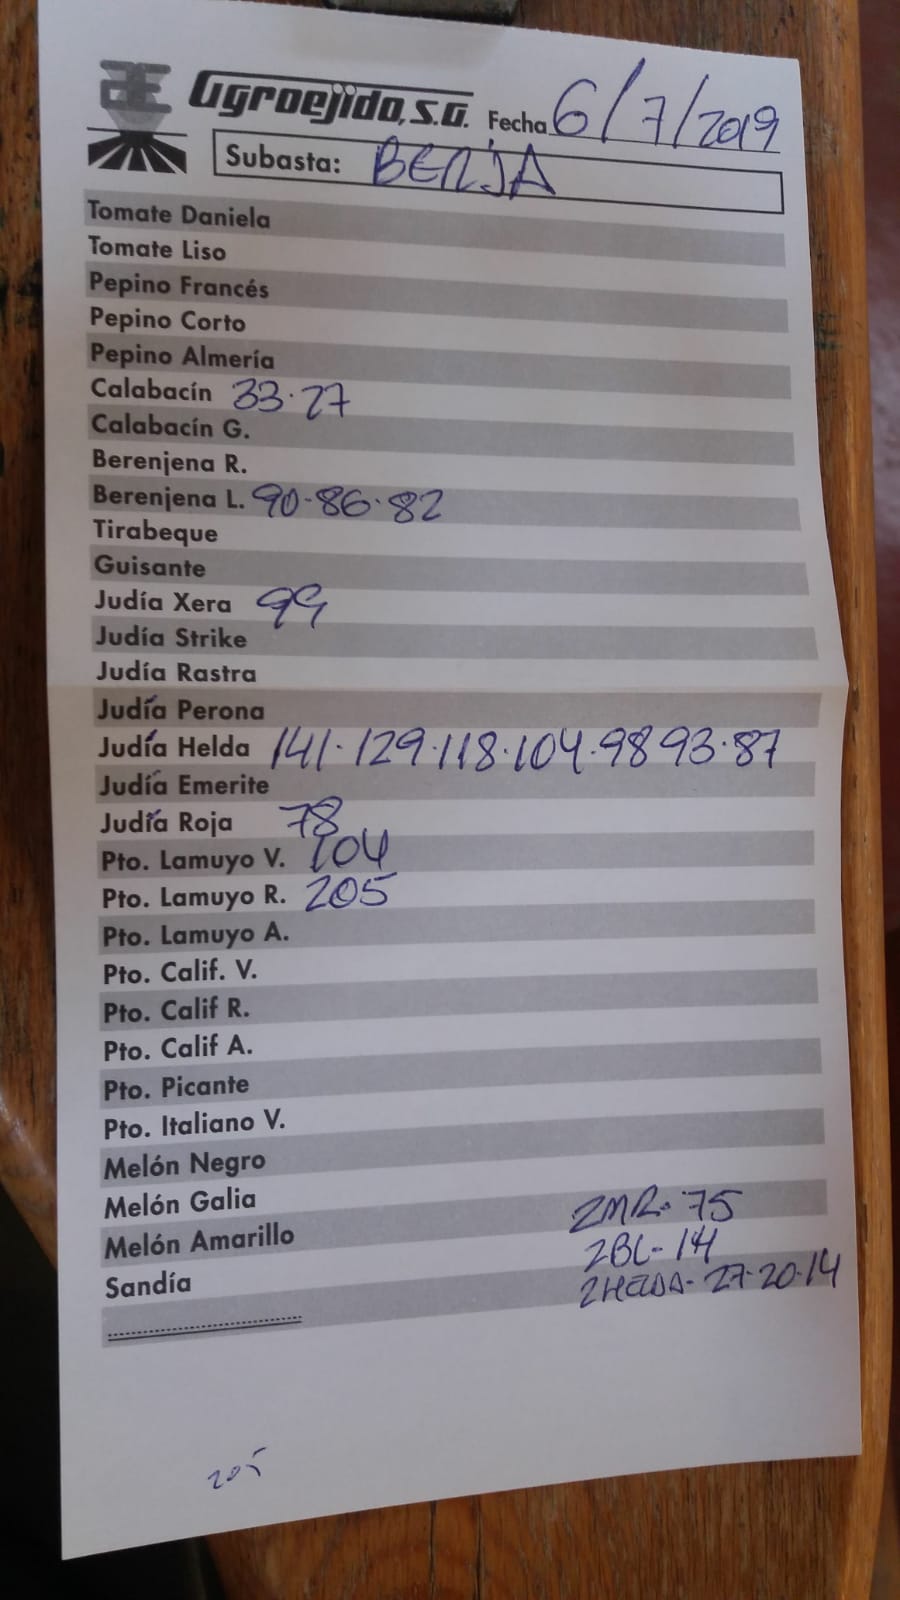 AE Agroejido, S.A. Fecha 6/7/2019
Subasta: BERJA
Tomate Daniela
Tomate Liso
Pepino Francés
Pepino Corto
Pepino Almería
Calabacín 33.27
Calabacín G.
Berenjena R.
Berenjena L. 90.86.82
Tirabeque
Guisante
Judía Xera 99
Judía Strike
Judía Rastra
Judía Perona
Judía Helda 141.129.118.104.98 93.87
Judía Emerite
Judía Roja 78
Pto. Lamuyo V. 104
Pto. Lamuyo R. 205
Pto. Lamuyo A.
Pto. Calif. V.
Pto. Calif R.
Pto. Calif A.
Pto. Picante
Pto. Italiano V.
Melón Negro
Melón Galia
Melón Amarillo
Sandía
2MR. 75
2BL- 14
2HELDA- 27.20.14
205